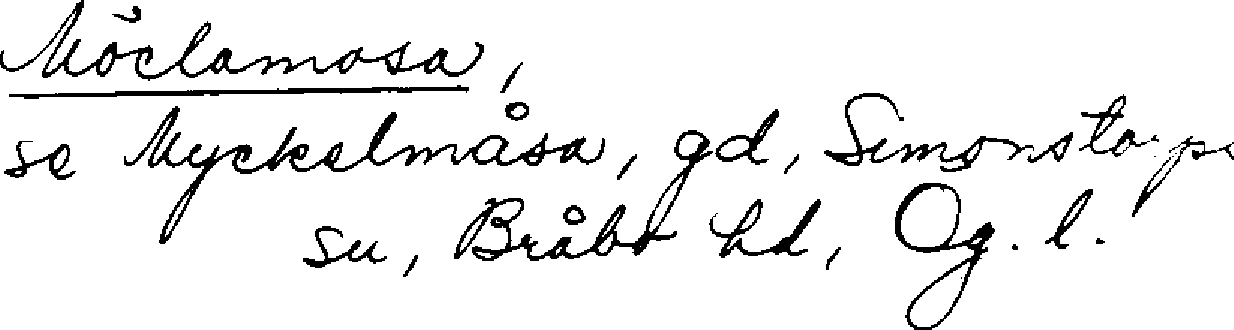 Möclamosa,
se Myckelmåsa, gd, Simonstorps
su, Bråbo hd, Ög. l.